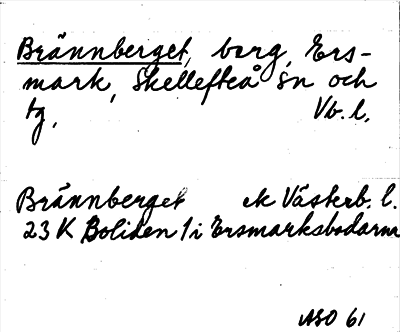 Brännberget, berg, Ers-
mark, Skellefteå sn och
tg, Vb. l.
Brännberget ek Västerb. l.
23 K Boliden 1 i Ersmarksbodarna
ASO 61